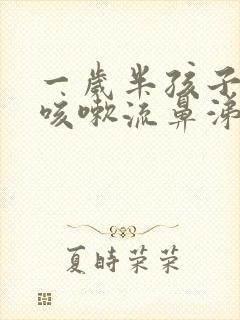 一岁半孩子
咳嗽流鼻涕
夏时荣荣